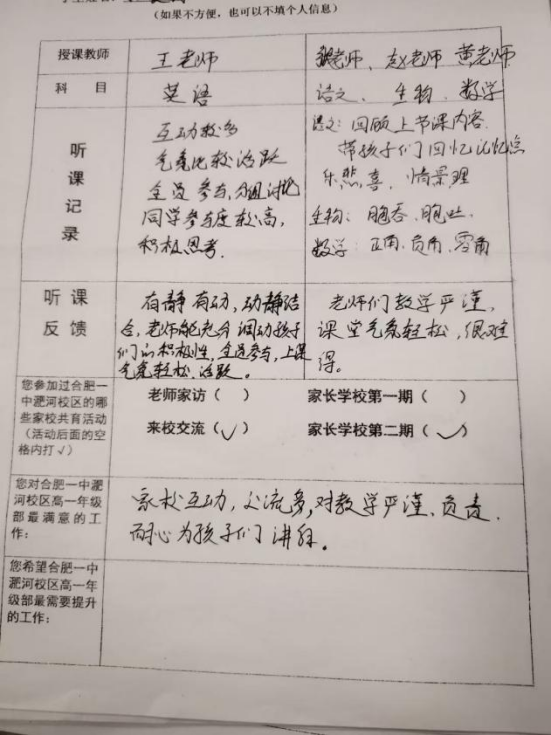 （如果不方便，也可以不填个人信息）
授课教师 王老师 老师、赵老师 黄老师
科 目 英语 语文、生物、数学
听课记录
互动较多
气氛比较活跃
全员参与，分组讨论
同学参与度较高，
积极思考．
语文：回顾上节课内容．
带孩子们回忆记忆点
乐悲喜、情景理
生物：胞吞、胞吐
数学：正角、负角、零角
听 课
反 馈
有静有动，动静结
合，老师能充分调动孩子
们的积极性，全员参与，上课
气氛轻松，活跃。
老师们教学严谨，
课堂气氛轻松，很难
得。
您参加过合肥一
中淝河校区的哪
些家校共育活动
（活动后面的空
格内打√）
老师家访（ ） 家长学校第一期（ ）
来校交流（√） 家长学校第二期（√）
您对合肥一中淝
河校区高一年级
部最满意的工
作：
家校互动，交流多，对教学严谨、负责．
耐心为孩子们讲解。
您希望合肥一中
淝河校区高一年
级部最需要提升
的工作：